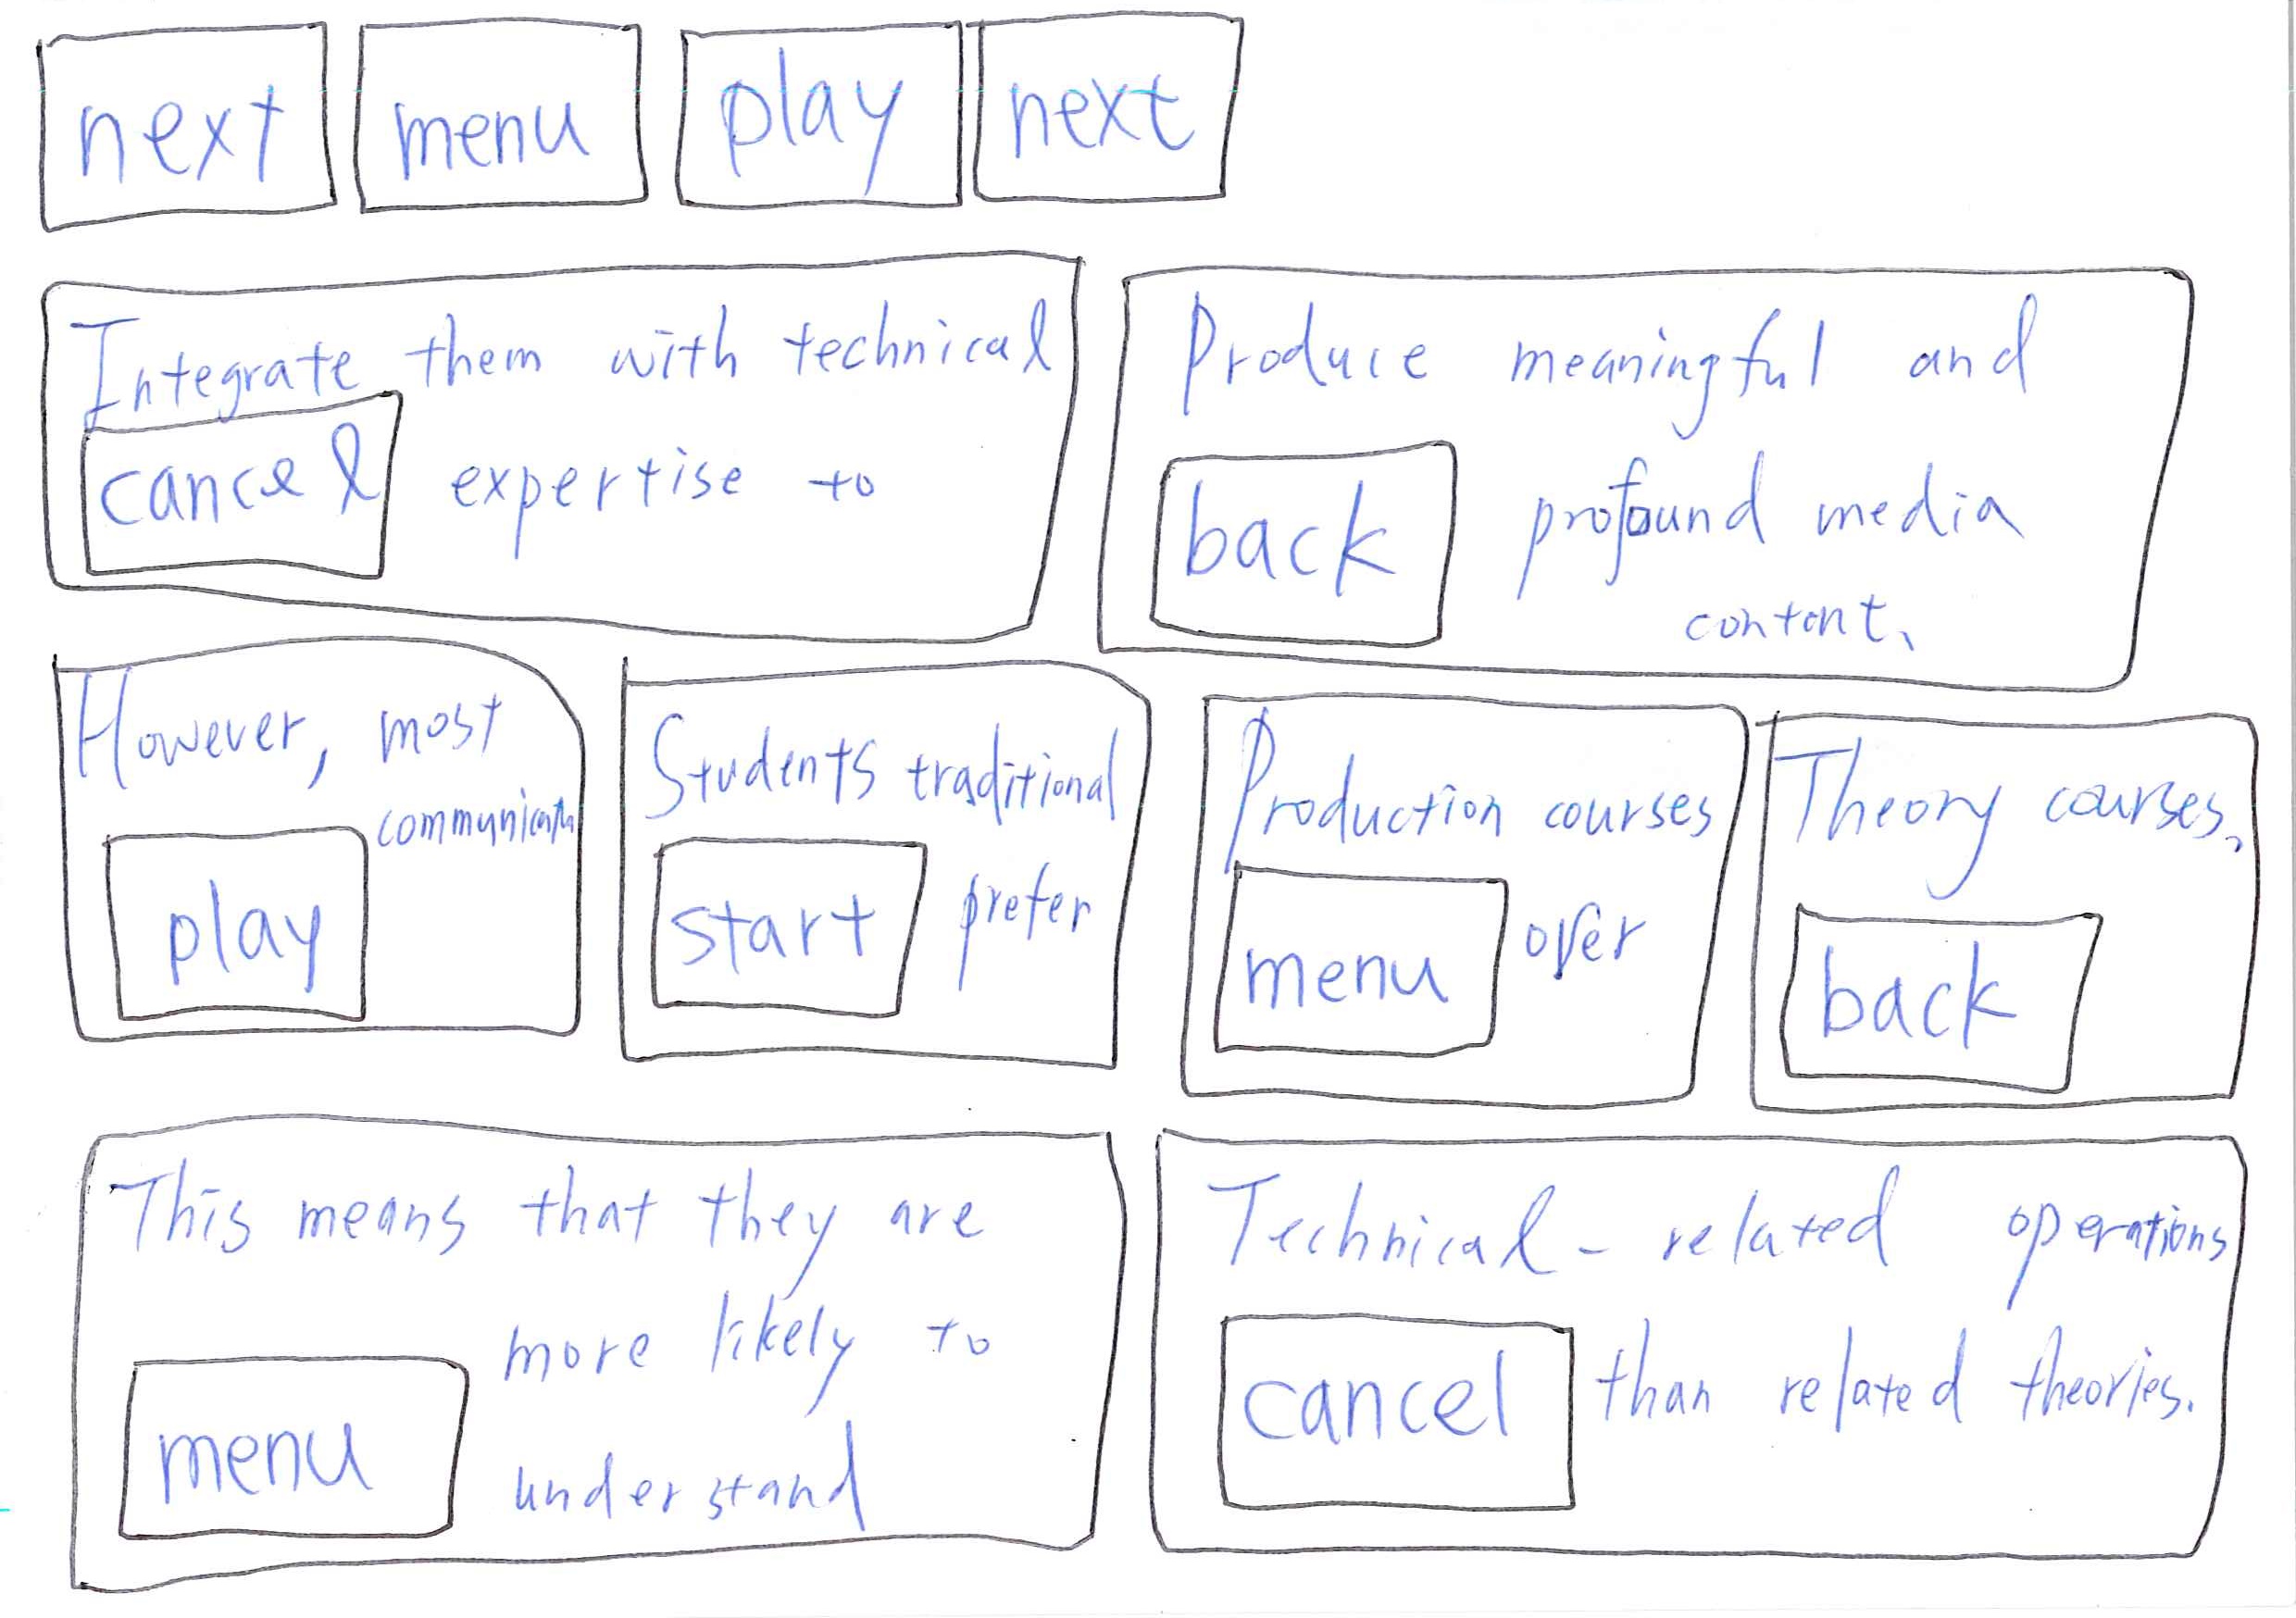 next menu play next
Integrate them with technical
cancel expertise to
Produce meaningful and
back profound media
content.
However, most
communicatn
play
Students traditional
start prefer
Production courses
menu over
Theory courses.
back
This means that they are
more likely to
menu understand
Technical-related operations
cancel than related theories.